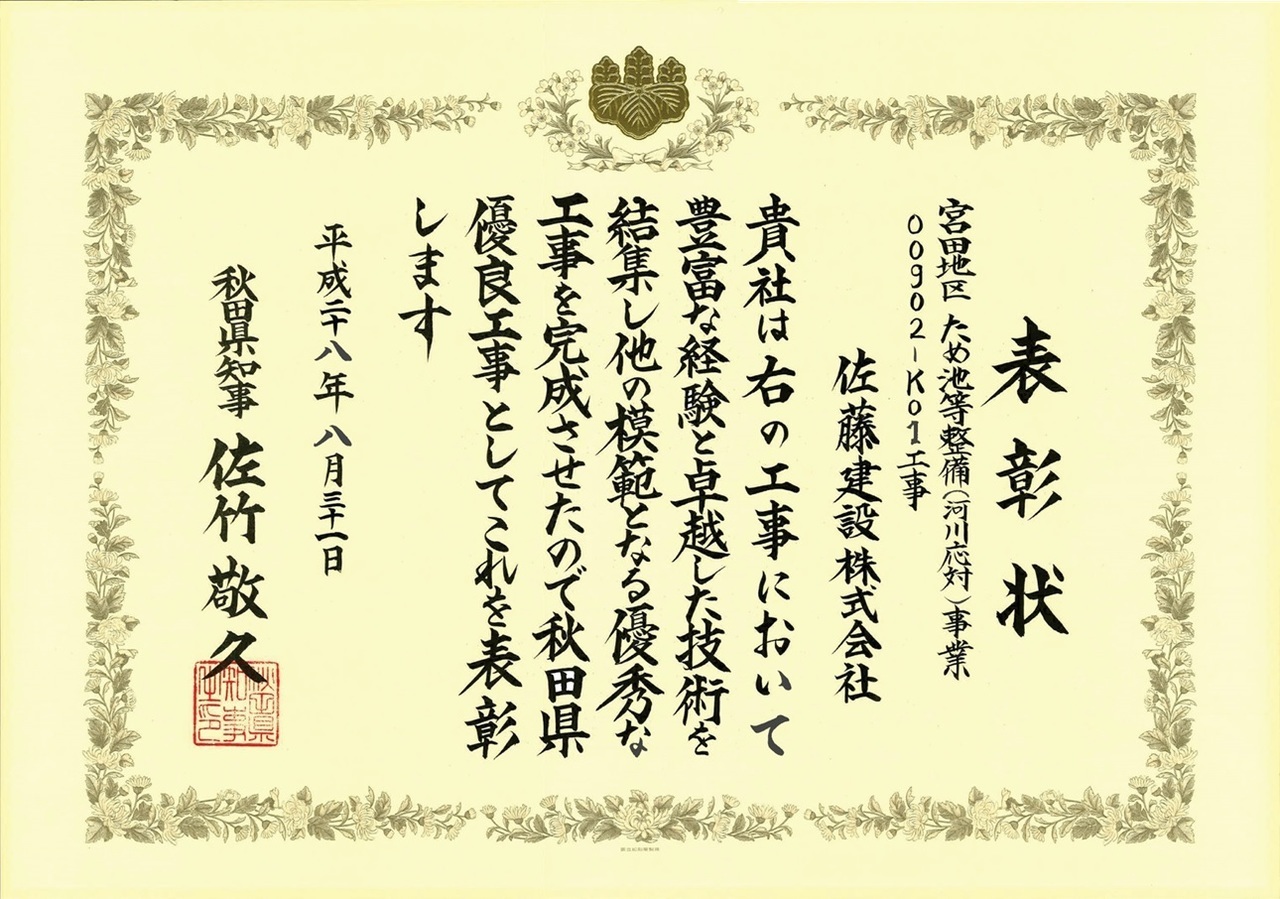 表彰状
宮田地区 ため池等整備(河川応対)事業
00902-K01工事
佐藤建設株式会社
貴社は右の工事において
豊富な経験と卓越した技術を
結集し他の模範となる優秀な
工事を完成させたので秋田県
優良工事としてこれを表彰
します
平成二十八年八月三十一日
秋田県知事 佐竹敬久